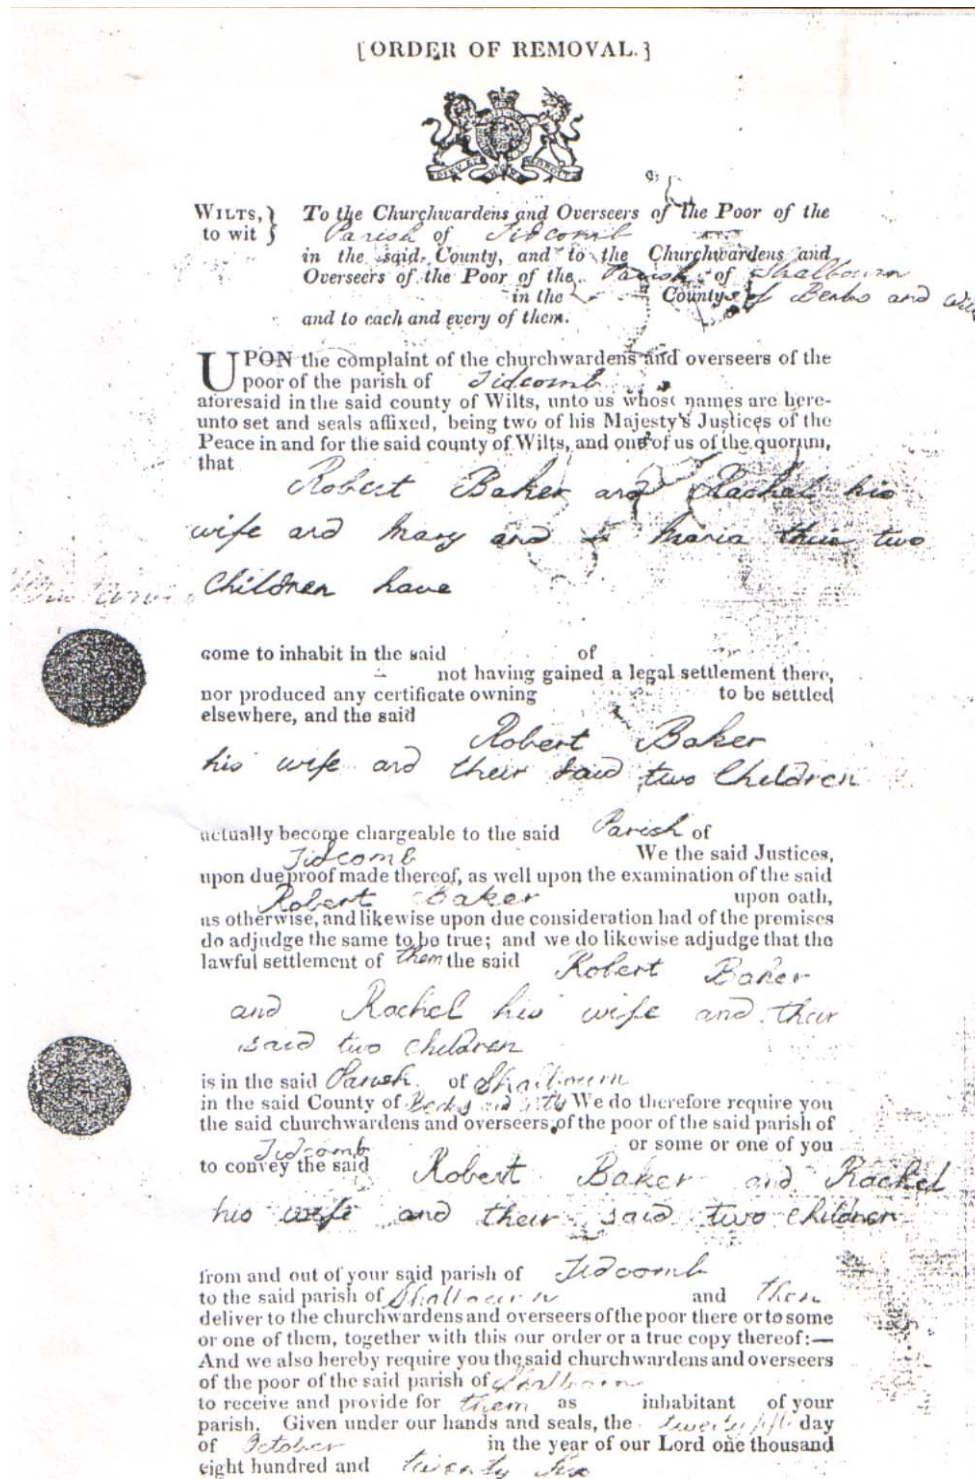 [ORDER OF REMAVAL.]
WILTS, } To the Churchwardens and Overseers of the Poor of the
to wit } Parish of Tidcomb
in the said County, and to the Churchwardens and
Overseers of the Poor of the Parish of Shalbourn
in the County of Berks and Wilts
and to each and every of them.
UPON the complaint of the churchwardens and overseers of the
poor of the parish of Tidcomb
aforesaid in the said county of Wilts, unto us whose names are here-
unto set and seals affixed, being two of his Majesty's Justices of the
Peace in and for the said county of Wilts, and one of us of the quorum,
that
Robert Baker and Rachel his
wife and Mary and Maria their two
Children have
come to inhabit in the said of
not having gained a legal settlement there,
nor produced any certificate owning to be settled
elsewhere, and the said
Robert Baker
his wife and their said two Children
actually become chargeable to the said Parish of
Tidcomb We the said Justices,
upon due proof made thereof, as well upon the examination of the said
Robert Baker upon oath,
as otherwise, and likewise upon due consideration had of the premises
do adjudge the same to be true; and we do likewise adjudge that the
lawful settlement of them the said Robert Baker
and Rachel his wife and their
said two children
is in the said Parish of Shalbourn
in the said County of Berks and Wilts We do therefore require you
the said churchwardens and overseers of the poor of the said parish of
Tidcomb or some or one of you
to convey the said Robert Baker and Rachel
his wife and their said two children
from and out of your said parish of Tidcomb
to the said parish of Shalbourn and them
deliver to the churchwardens and overseers of the poor there or to some
or one of them, together with this our order or a true copy thereof:—
And we also hereby require you the said churchwardens and overseers
of the poor of the said parish of Shalbourn
to receive and provide for them as inhabitant of your
parish. Given under our hands and seals, the twenty fifth day
of October in the year of our Lord one thousand
eight hundred and twenty six